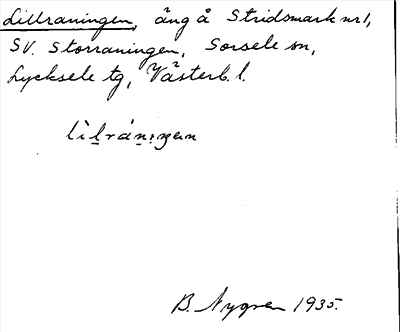 Lillraningen, äng å Stridsmark nr 1,
SV. Storraningen, Sorsele sn,
Lycksele tg, Västerb. l.
lìl̲rán̲i̲ŋɛn
B. Nygren 1935.